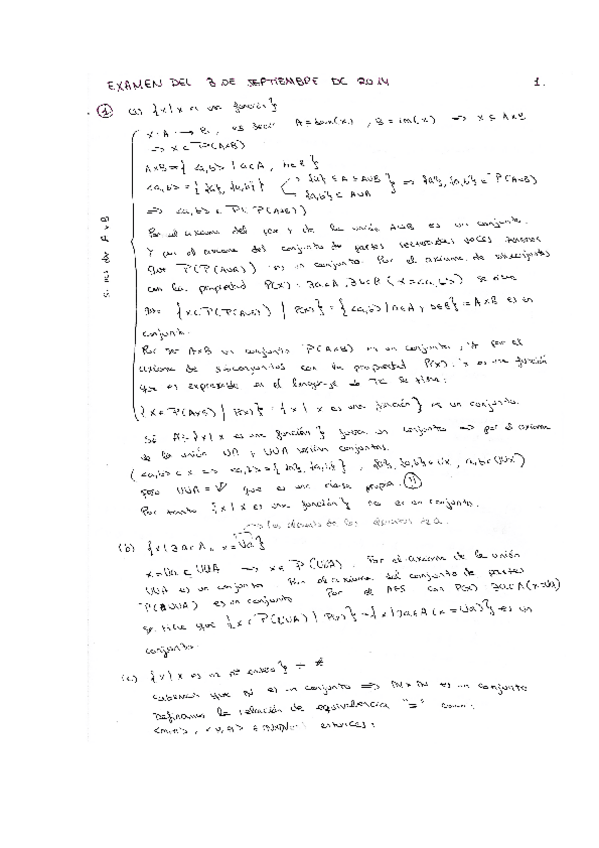 EXAMEN DEL 3 DE SEPTIEMBRE DE 2014 1.
① (a) {x | x es una función}
x: A → B, es decir A = dom(x), B = im(x) ⇒ x ⊆ A×B
⇒ x ∈ P(A×B)
A×B = { <a,b> | a∈A, b∈B }
<a,b> = { {a}, {a,b} } {a} ⊆ A ⊆ A∪B {a,b} ⊆ A∪B } ⇒ {a}, {a,b} ∈ P(A∪B)
⇒ <a,b> ∈ P(P(A∪B))
Por el axioma del par y de la unión A∪B es un conjunto.
Y con el axioma del conjunto de partes veces tenemos
que P(P(A∪B)) es un conjunto. Por el axioma de subconjuntos
con la propiedad P(x): ∃a∈A, ∃b∈B (x = <a,b>) se tiene
que {x∈P(P(A∪B)) | P(x)} = {<a,b> | a∈A, b∈B} = A×B es un
conjunto.
Por ser A×B un conjunto P(A×B) es un conjunto, y por el
axioma de subconjuntos con la propiedad P(x): x es una función
que es expresable en el lenguaje de TC se tiene:
{x ∈ P(A×B) | P(x)} = {x | x es una función} es un conjunto.
Si A = {x | x es una función} fuera un conjunto ⇒ por el axioma
de la unión ∪A y ∪∪A serían conjuntos.
(<a,b> ∈ x ⇒ <a,b> = {{a}, {a,b}}, {a}, {a,b} ∈ ∪x, a,b ∈ ∪∪x)
pero ∪∪A = V que es una clase propia. (!!)
Por tanto {x | x es una función} no es un conjunto.
los elementos de los elementos de a.
(b) {x | ∃a∈A, x = ∪a}
x = ∪a ⊆ ∪∪A ⇒ x ∈ P(∪∪A). Por el axioma de la unión
∪∪A es un conjunto. Por el axioma del conjunto de partes
P(∪∪A) es un conjunto. Por el AES con P(x): ∃a∈A (x=∪a)
se tiene que {x∈P(∪∪A) | P(x)} = {x | ∃a∈A (x=∪a)} es un
conjunto.
(c) {x | x es un nº entero}
Sabemos que ℕ es un conjunto ⇒ ℕ×ℕ es un conjunto
Definamos la relación de equivalencia "≡" como:
<m,n>, <p,q> ∈ ℕ×ℕ entonces: